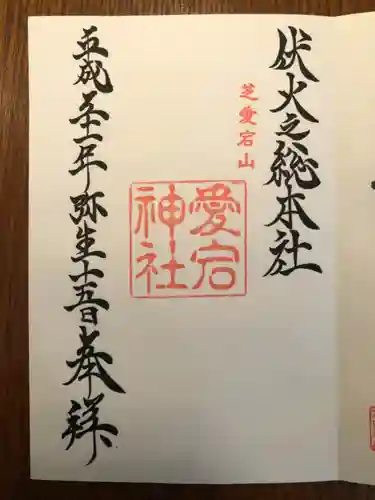 伏火之総本社
芝愛宕山
愛宕
神社
平成三十一年弥生十五日奉拝